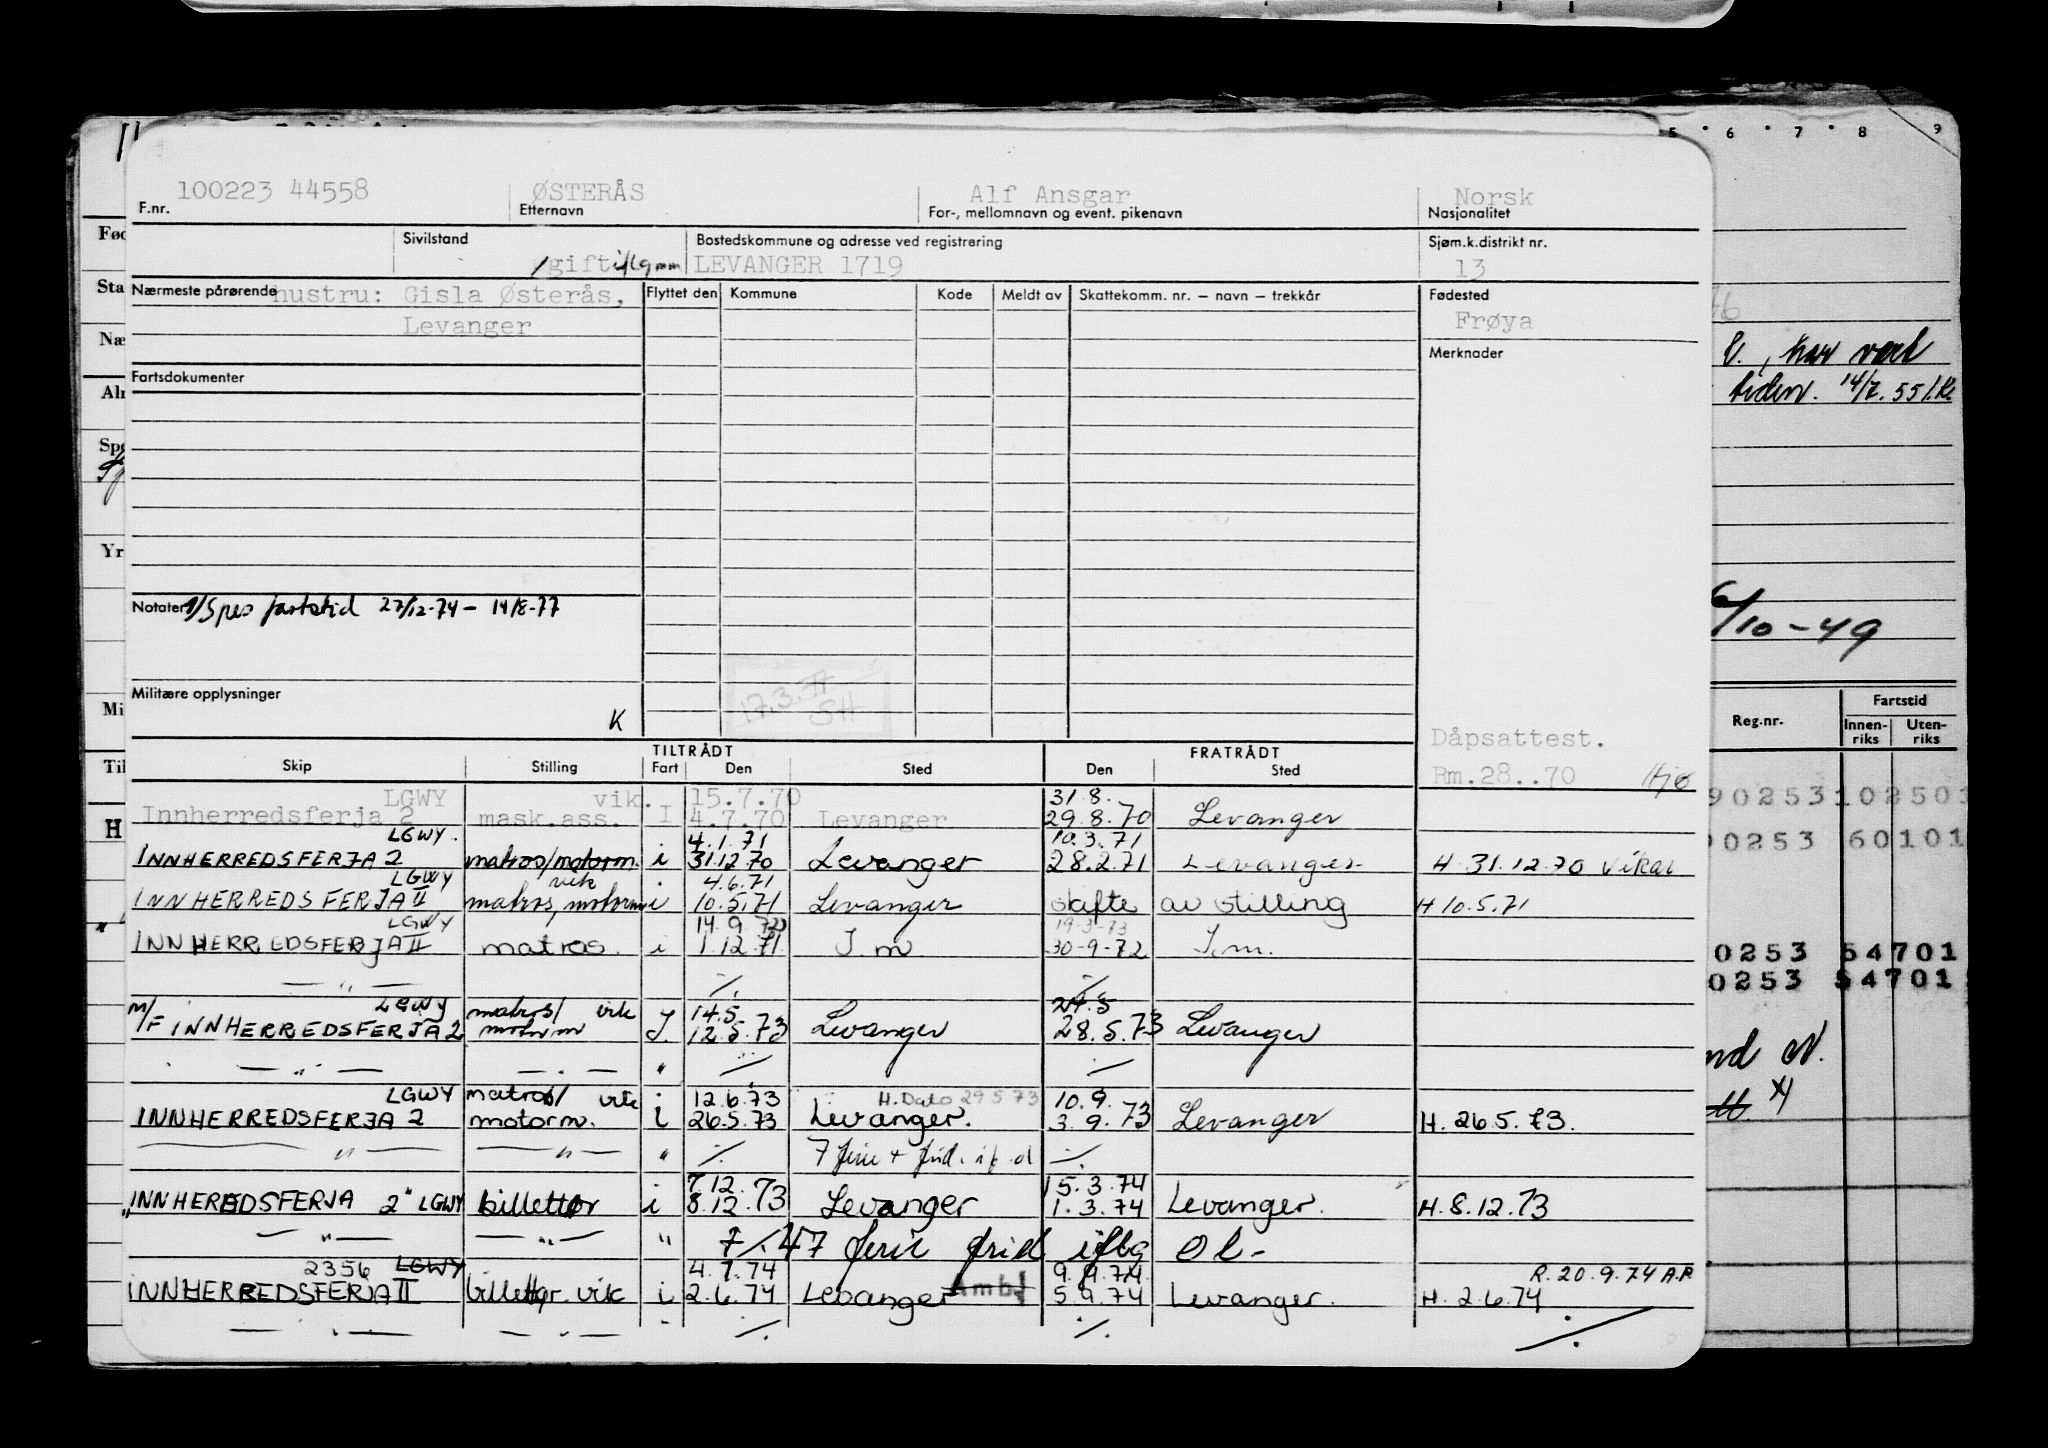 5 6 7 8 9
100223 44558 ØSTERÅS Alf Ansgar Norsk
F.nr. Etternavn For-, mellomnavn og event. pikenavn Nasjonalitet
Sivilstand Bostedskommune og adresse ved registrering Sjøm.k.distrikt nr.
gift LEVANGER 1719 13
Nærmeste pårørende hustru: Gisla Østerås, Flyttet den Kommune Kode Meldt av Skattekomm. nr. – navn – trekkår Fødested
Levanger Frøya
Merknader
Fartsdokumenter
Notater Spes fartstid 27/12-74 – 14/8-77
17.3.77
SH
Militære opplysninger
K
Dåpsattest.
Rm.28..70
TILTRÅDT FRATRÅDT
Skip Stilling Fart Den Sted Den Sted
LGWY vik. 15.7.70 31.8.
Innherredsferja 2 mask.ass. I 4.7.70 Levanger 29.8.70 Levanger
LGWY. 4.1.71 10.3.71
INNHERREDSFERJA 2 matros/motorm. i 31.12.70 Levanger 28.2.71 Levanger H 31.12.70 Vikar
LGWY vik 4.6.71
INNHERREDSFERJA II matros, motorm i 10.5.71 Levanger skifte av stilling H 10.5.71
LGWY 14.9.72 19-3-73
INNHERREDSFERJA II matros. i 1.12.71 I.m. 30-9-72 I.m.
— " — ./. ./.
LGWY matros/ vik 14.5. 24.5
M/F INNHERREDSFERJA 2 motorm I. 12.5.73 Levanger 28.5.73 Levanger
— " — — " — "
LGWY matros/ vik 12.6.73 H.Dato 29 5 73 10.9.
INNHERREDSFERJA 2 motorm. i 26.5.73 Levanger. 3.9.73 Levanger H. 26.5.73.
— " — — " — " ./. 7 ferie + frid. ./.
7.12. 15.3.74
"INNHEREDSFERJA 2" LGWY billettør i 8.12.73 Levanger 1.3.74 Levanger. H.8.12.73
— " — — " — " 7 ./. 47 ferie frid iflg
2356 LGWY 4.7.74 9.9.74. R.20.9.74 A.P.
INNHERREDSFERJA II billettør vik i 2.6.74 Levanger Amb 5.9.74 Levanger. H. 2.6.74
— " — — " — ./. ./. ./.
Fød
Sta
Næ
Aln
Spe
Yr
Mi
Til
H
46
, har vært
tiden. 14/7.55
6/10-49
Reg.nr. Fartstid
Innen-riks Uten-riks
90253 102503
90253 60101
0253 54701
0253 54701